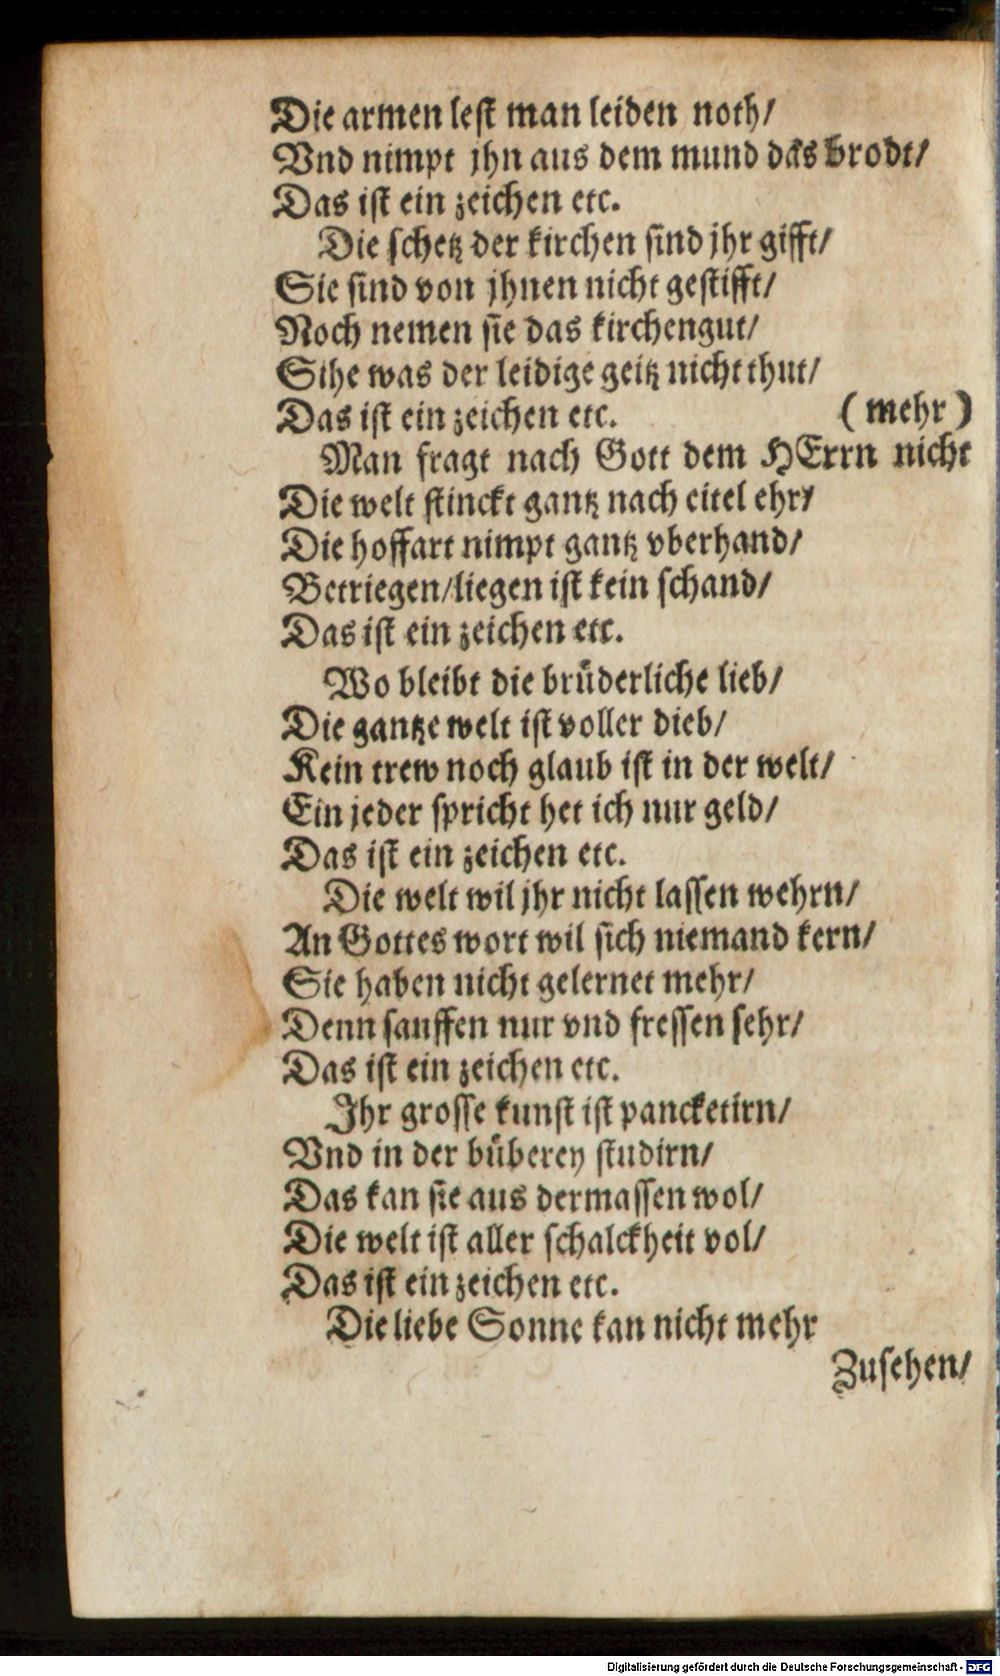 Die armen leſt man leiden noth/
Vnd nimpt jhn aus dem mund das brodt/
Das iſt ein zeichen etc.
Die ſchetz der kirchen ſind jhr gifft/
Sie ſind von jhnen nicht geſtifft/
Noch nemen ſie das kirchengut/
Sihe was der leidige geitz nicht thut/
Das iſt ein zeichen etc. (mehr)
Man fragt nach Gott dem HErrn nicht
Die welt ſtinckt gantz nach eitel ehr/
Die hoffart nimpt gantz vberhand/
Betriegen/liegen iſt kein ſchand/
Das iſt ein zeichen etc.
Wo bleibt die bruͤderliche lieb/
Die gantze welt iſt voller dieb/
Kein trew noch glaub iſt in der welt/
Ein jeder ſpricht het ich nur geld/
Das iſt ein zeichen etc.
Die welt wil jhr nicht laſſen wehrn/
An Gottes wort wil ſich niemand kern/
Sie haben nicht gelernet mehr/
Denn ſauffen nur vnd freſſen ſehr/
Das iſt ein zeichen etc.
Ihr groſſe kunſt iſt pancketirn/
Vnd in der buͤberey ſtudirn/
Das kan ſie aus dermaſſen wol/
Die welt iſt aller ſchalckheit vol/
Das iſt ein zeichen etc.
Die liebe Sonne kan nicht mehr
Zuſehen/
Digitalisierung gefördert durch die Deutsche Forschungsgemeinschaft - DFG